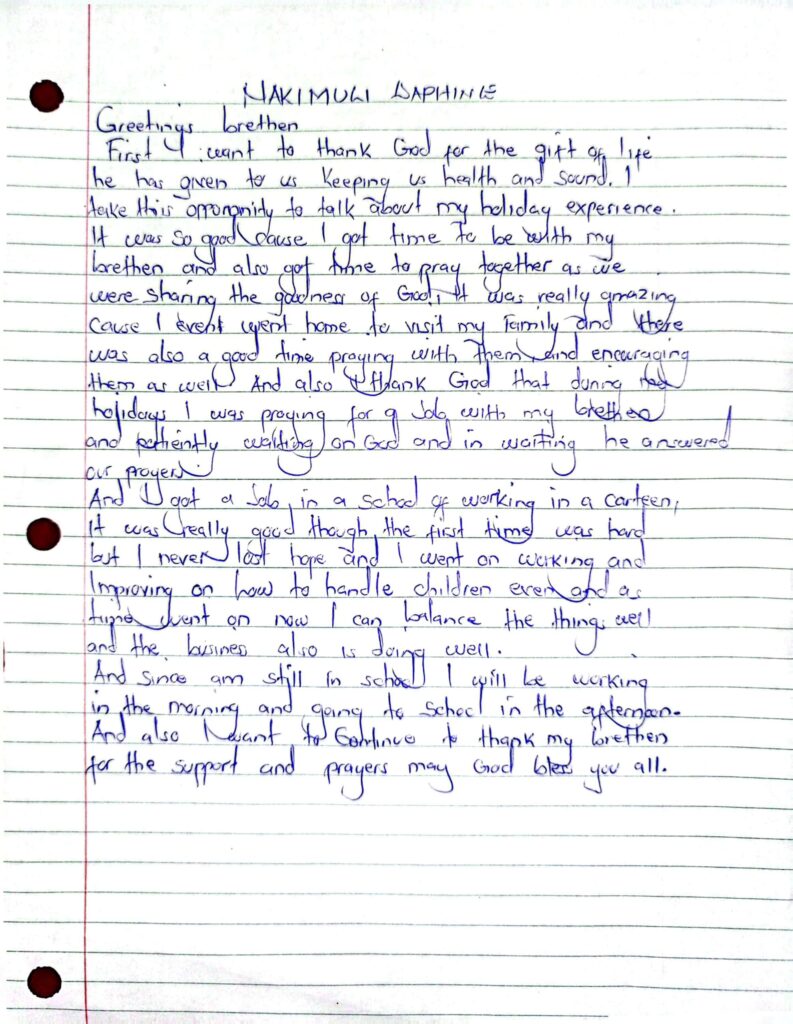 NAKIMULI DAPHINE
Greetings brethen
First I want to thank God for the gift of life
he has given to us keeping us health and sound. I
take this opporgnity to talk about my holiday experience.
It was so good cause I got time to be with my
brethen and also got time to pray together as we
were sharing the goodness of God, it was really amazing
cause I event went home to visit my family and there
was also a good time praying with them and encouraging
them as well And also I thank God that during
holidays I was praying for a Job with my brethen
and patiently waiting on God and in waiting he answered
our prayers.
And I got a Job, in a school of working in a canteen,
It was really good though, the first time was hard
but I never lost hope and I went on working and
Improving on how to handle children even and as
time went on now I can balance the things well
and the business also is doing well.
And since am still in school I will be working
in the morning and going to school in the afternoon.
And also I want to Continue to thank my brethen
for the support and prayers may God bless you all.